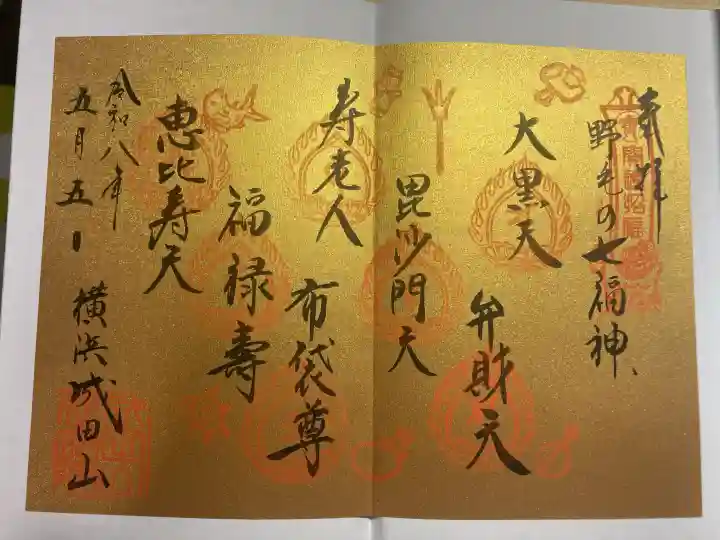 奉拝
開運招福
野毛の七福神、
大黒天
弁財天
毘沙門天
寿老人
布袋尊
福禄壽
恵比寿天
令和八年
五月五日
横浜成田山